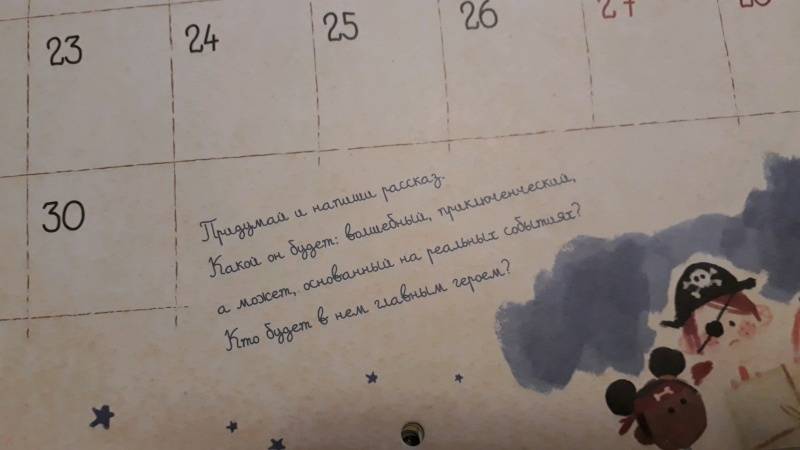 23 24 25 26 27
30
Придумай и напиши рассказ.
Какой он будет: волшебный, приключенческий,
а может, основанный на реальных событиях?
Кто будет в нем главным героем?